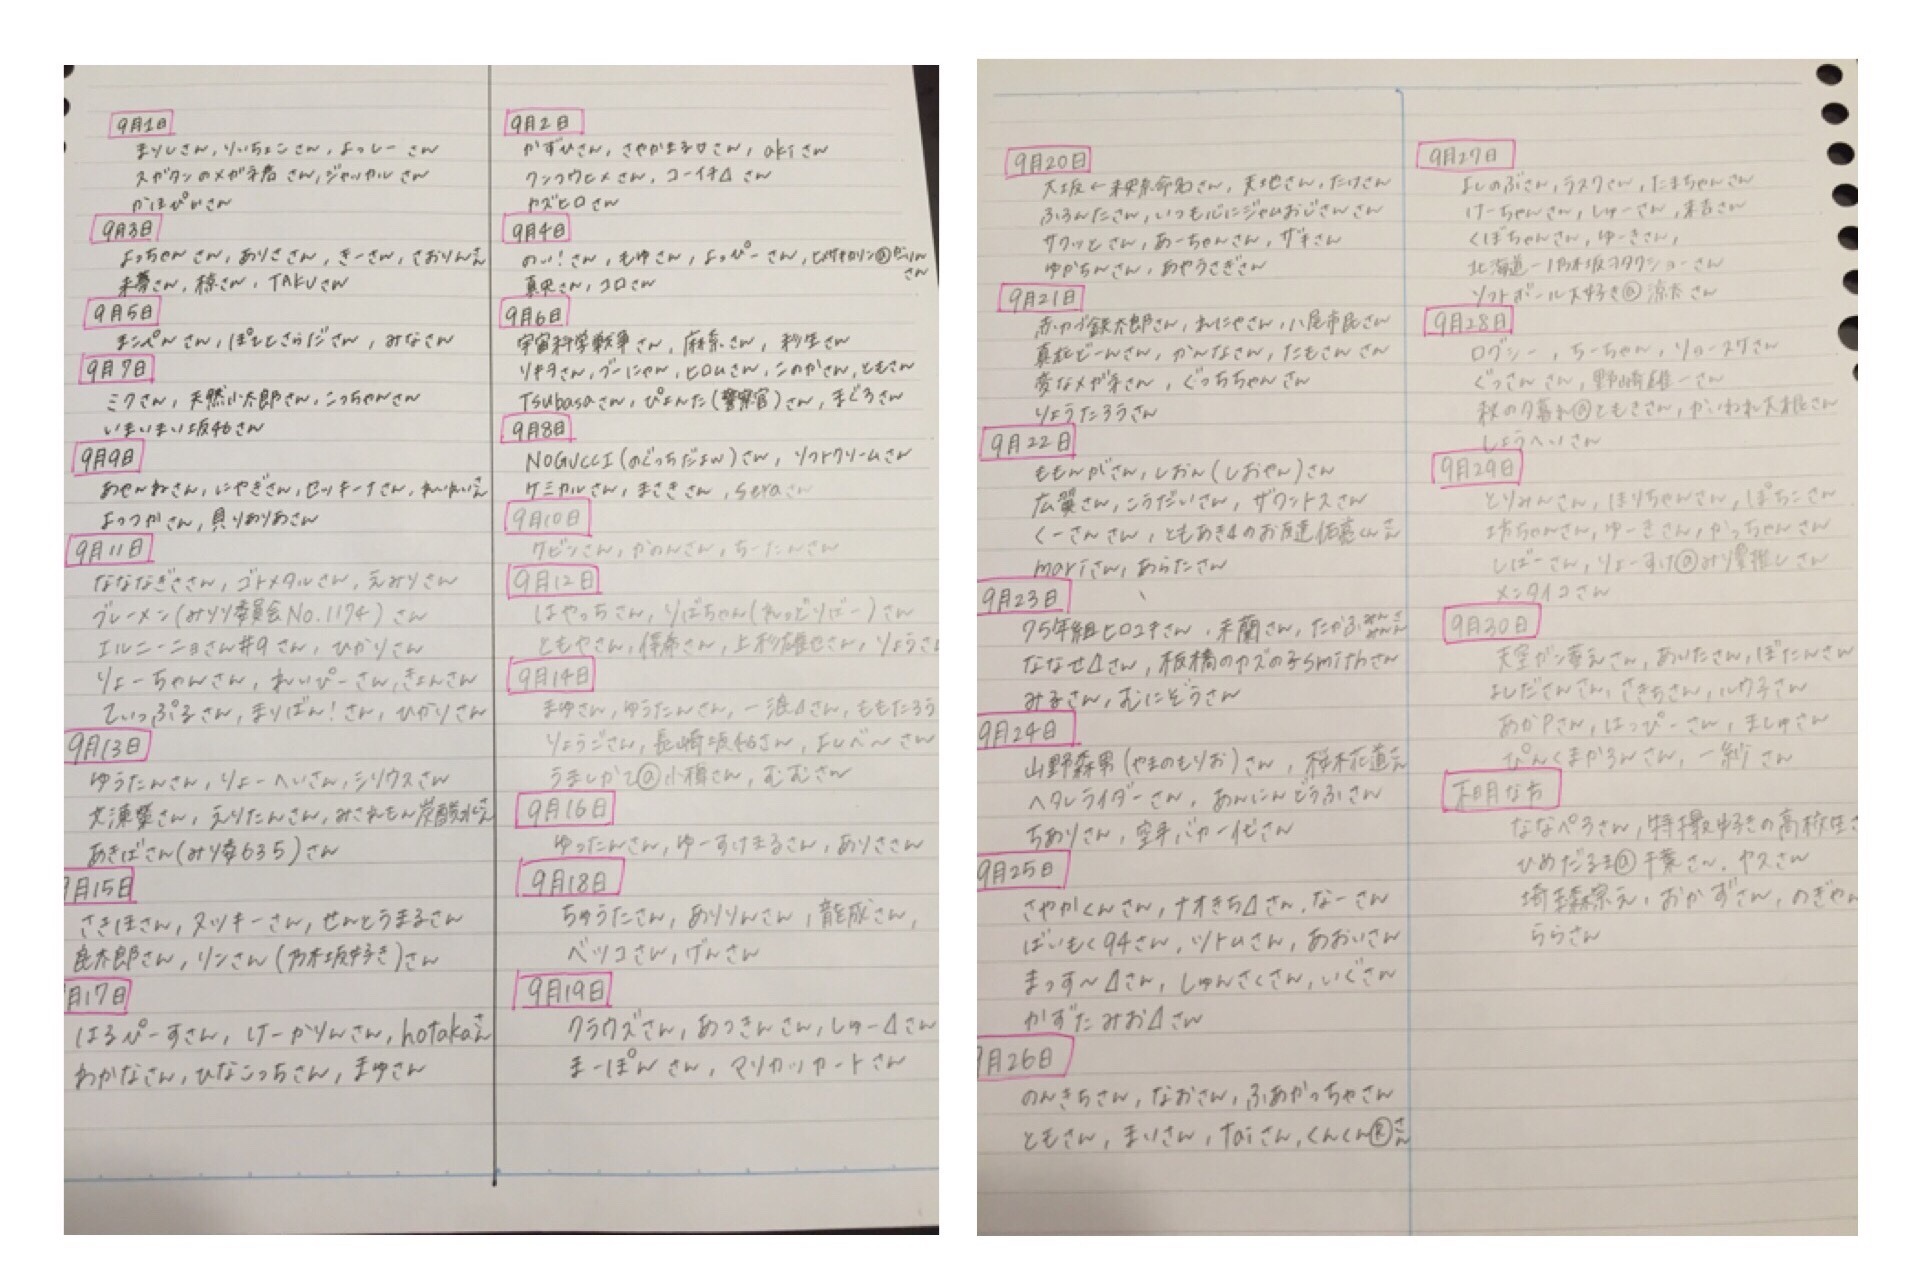 9月1日
まりしさん,りいちょこさん,よっしーさん
スガタンのメガネ君さん,ジャッカルさん
かほぴいさん
9月3日
よっちゃんさん,ありささん,きーさん,さおりんさん
未夢さん,椋さん,TAKUさん
9月5日
まこぺんさん,ぽてとさらださん,みなさん
9月7日
ミクさん,天然小太郎さん,こっちゃんさん
いまいまい坂46さん
9月9日
あせ〜ねさん,にやぎさん,セッキーナさん,れいれいさん
よっつかさん,貝りありあさん
9月11日
なななぎささん,ゴトメタルさん,えみりさん
ブレーメン(みりり委員会No.1174)さん
エルニーニョさん#9さん,ひかりさん
りょーちゃんさん,れいぴーさん,きょんさん
てぃっぷるさん,まりばん!さん,ひかりさん
9月13日
ゆうたんさん,りょーへいさん,シリウスさん
さん,えりたんさん,みされもん炭酸水さん
あきばさん(みり卒635)さん
9月15日
さきほさん,ヌッキーさん,せんとうまるさん
良太郎さん,リンさん(乃木坂好き)さん
9月17日
はるぴーすさん,けーかりんさん,hotakaさん
わかなさん,ひなこっちさん,まゆさん
9月2日
かずひさん,さやかまる口さん,akiさん
ワンコウヒメさん,コーイチ△さん
ヤズヒロさん
9月4日
のい!さん,もゆさん,よっぴーさん,
真央さん,コロさん
9月6日
宇宙科学戦争さん,麻糸さん,彩生さん
リキヲさん,ブーにゃん,ヒロムさん,このかさん,ともさん
Tsubasaさん,ぴょんた(警察官)さん,まぐろさん
9月8日
NOGUCCI(のぐっちだょん)さん,ソフトクリームさん
ケミカルさん,まさきさん,seraさん
9月10日
ケビンさん,かのんさん,ちーたんさん
9月12日
はやっちさん,りばちゃん(れっどりばー)さん
ともやさん,さん,上杉雄也さん,りょうさ
9月14日
まゆさん,ゆうたんさん,一浪△さん,ももたろう
りょうごさん,長崎坂46さん,よしべ〜さん
うましかて@小樽さん,むむさん
9月16日
ゆったんさん,ゆーすけまるさん,ありささん
9月18日
ちゅうたさん,ありりんさん,龍成さん,
ベッコさん,げんさん
9月19日
クラウズさん,あっきんさん,しゅー△さん
まーぽんさん,マリカッカートさん
9月20日
大坂←未完命名さん,天地さん,たけさん
ふろんたさん,いつも心にジャムおじさんさん
サクッとさん,あーちゃんさん,ザキさん
ゆかちんさん,あやうさぎさん
9月21日
赤カブ鉄太郎さん,れにゃさん,八尾市民さん
真在どーんさん,かんなさん,たもさんさん
変なメガネさん,ぐっちちゃんさん
りょうたろうさん
9月22日
ももんがさん,しおん(しおやん)さん
広翼さん,こうだいさん,ザワントスさん
くーさんさん,ともあき△のお友達佑亮くんさん
mariさん,あらたさん
9月23日
75年組ヒロユキさん,未蘭さん,たかふみんみんさん
ななせ△さん,板橋のカズの子smithさん
みるさん,むにぞうさん
9月24日
山野森男(やまのもりお)さん,桜木花道さん
ヘタレライダーさん,あんにんどうふさん
ちありさん,空手バカ一代さん
9月25日
さやかくんさん,ナオきち△さん,なーさん
ばいもく94さん,ツトムさん,あおいさん
まっす〜△さん,しゅんさくさん,いぐさん
かずたみお△さん
9月26日
のんきちさん,なおさん,ふあかっちゃさん
ともさん,まいさん,taiさん,くんくん®さん
9月27日
よしのぶさん,ラスクさん,たまちゃんさん
けーちゃんさん,しゅーさん,来吉さん
くぼちゃんさん,ゆーきさん,
北海道一乃木坂ヲタクショーさん
ソフトボール大好き@涼太さん
9月28日
ログシー,ちーちゃん,リョースケさん
ぐっさんさん,野崎雄一さん
秋の夕暮れ@ともきさん,かいわれ大根さん
しょうへいさん
9月29日
とりみんさん,ほりちゃんさん,ぽちこさん
坊ちゃんさん,ゆーきさん,かっちゃんさん
しばーさん,りょーすけ@みり愛推しさん
メンタイコさん
9月30日
天空ガン萎えさん,あいたさん,ぼたんさん
よしださんさん,さきちさん,ルウ子さん
あかPさん,はっぴーさん,ましゅさん
ぴんくまかろんさん,一紗さん
不明な方
ななぺろさん,特撮好きの高校生さ
ひめだるま@千葉さん,ヤスさん
おかずさん,のぎやん
ららさん